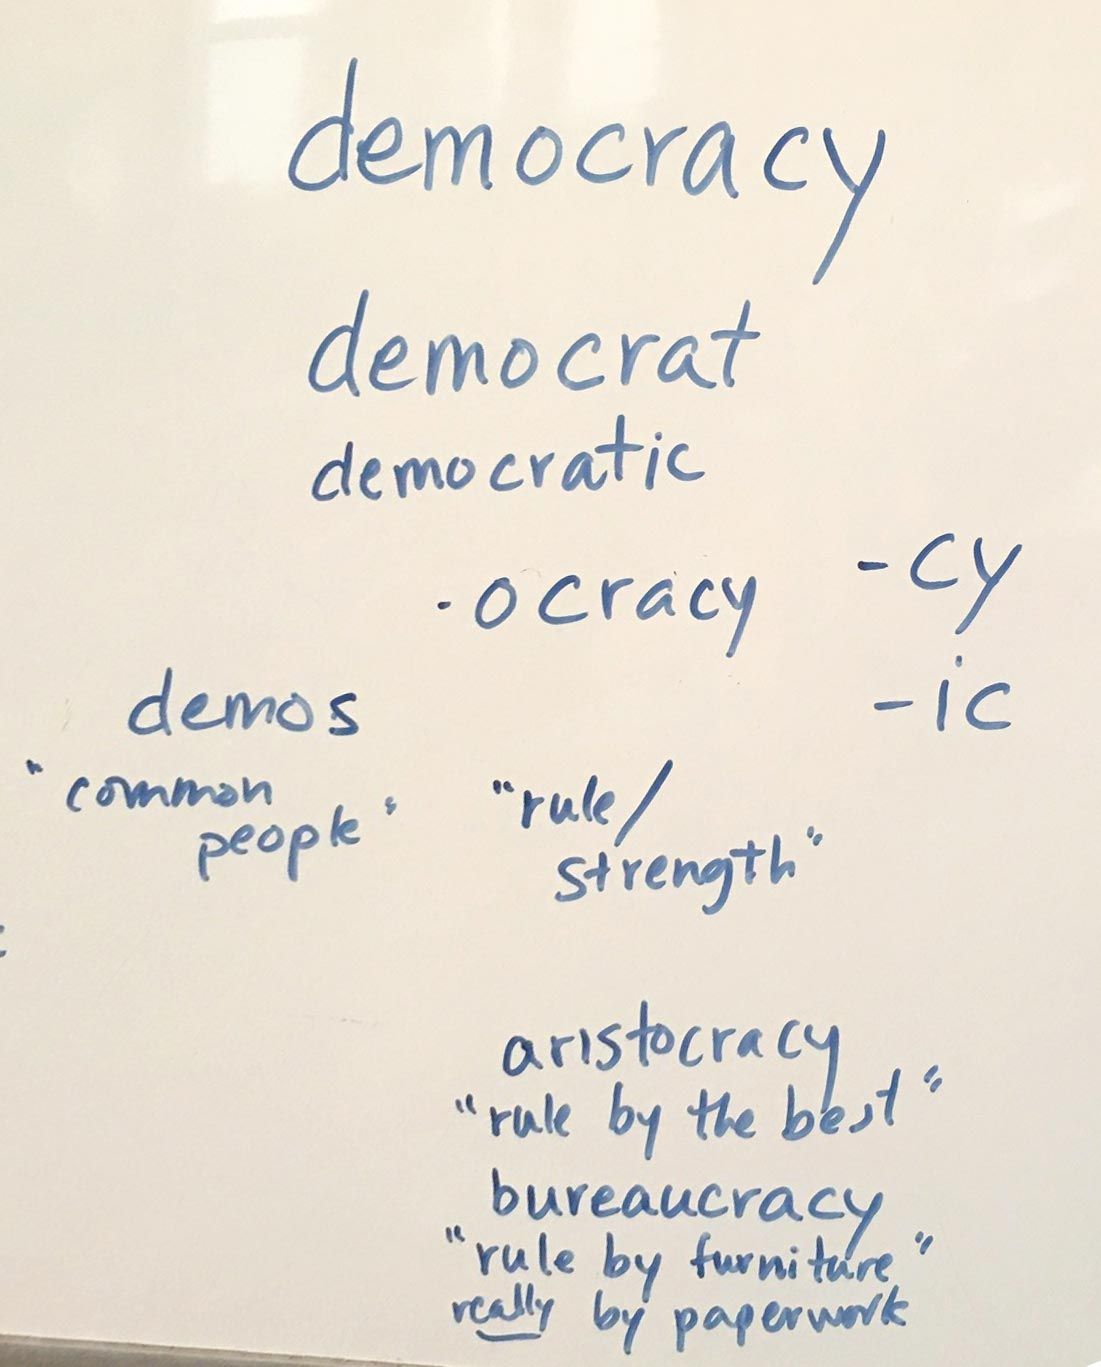 democracy
democrat
democratic
-ocracy
-cy
-ic
demos
"common
people"
"rule/
strength"
aristocracy
"rule by the best"
bureaucracy
"rule by furniture"
really by paperwork